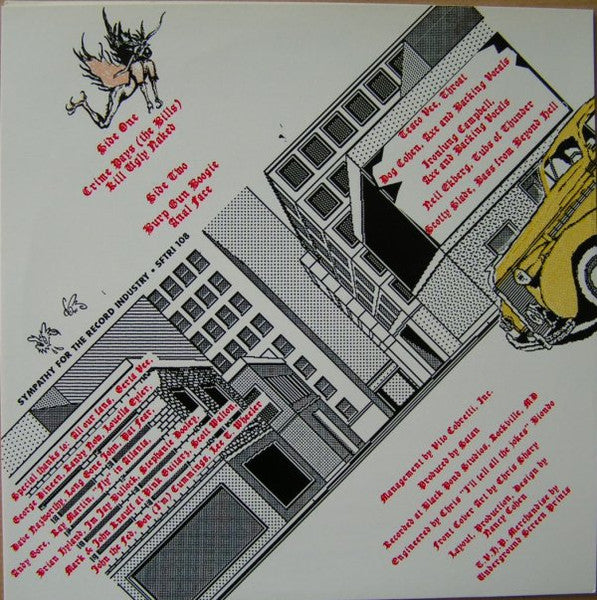 Side One
Crime Pays (the Bills)
Kill Ugly Naked
Side Two
Burp Gun Boogie
Anal Face
Tesco Vee, Throat
Dog Cohen, Axe and Backing Vocals
Ironlung Campbell,
Axe and Backing Vocals
Neil Ekberg, Tubs of Thunder
Scotty Blade, Bass from Beyond Hell
SYMPATHY FOR THE RECORD INDUSTRY • SFTRI 108
Special thanks to: All our fans, Gerta Vee,
George Vincen, Randy Now, Louella Eyler,
Dave Hayworth, Long Gone John, Pat Fear,
Andy Gore, Ray Martin, "Fly" in Atlanta,
Brian Hyland, Jay Bullock, Stephanie Boley,
Mark & John Ansult ( Pink Guitar), Scott Wallon,
John the Fed, Ben (J.) Cummings, Lee T. Wheeler
Management by Vito Cobretti, Inc.
Produced by Satan
Recorded at Black Pond Studios, Rockville, MD
Engineered by Chris "I'll tell all the jokes" Biondo
Front Cover Art by Chris Shary
Layout, Production, Design by
Nancy Cohen
T.V.H.B. Merchandise by
Underground Screen Prints